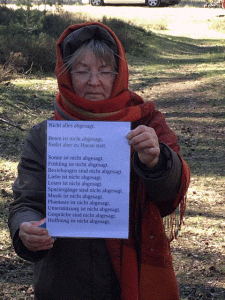 Nicht alles abgesagt.
Beten ist nicht abgesagt,
findet aber zu Hause statt.
Sonne ist nicht abgesagt.
Frühling ist nicht abgesagt.
Beziehungen sind nicht abgesagt.
Liebe ist nicht abgesagt.
Lesen ist nicht abgesagt.
Spaziergänge sind nicht abgesagt.
Musik ist nicht abgesagt.
Phantasie ist nicht abgesagt.
Unterstützung ist nicht abgesagt.
Gespräche sind nicht abgesagt.
Hoffnung ist nicht abgesagt.